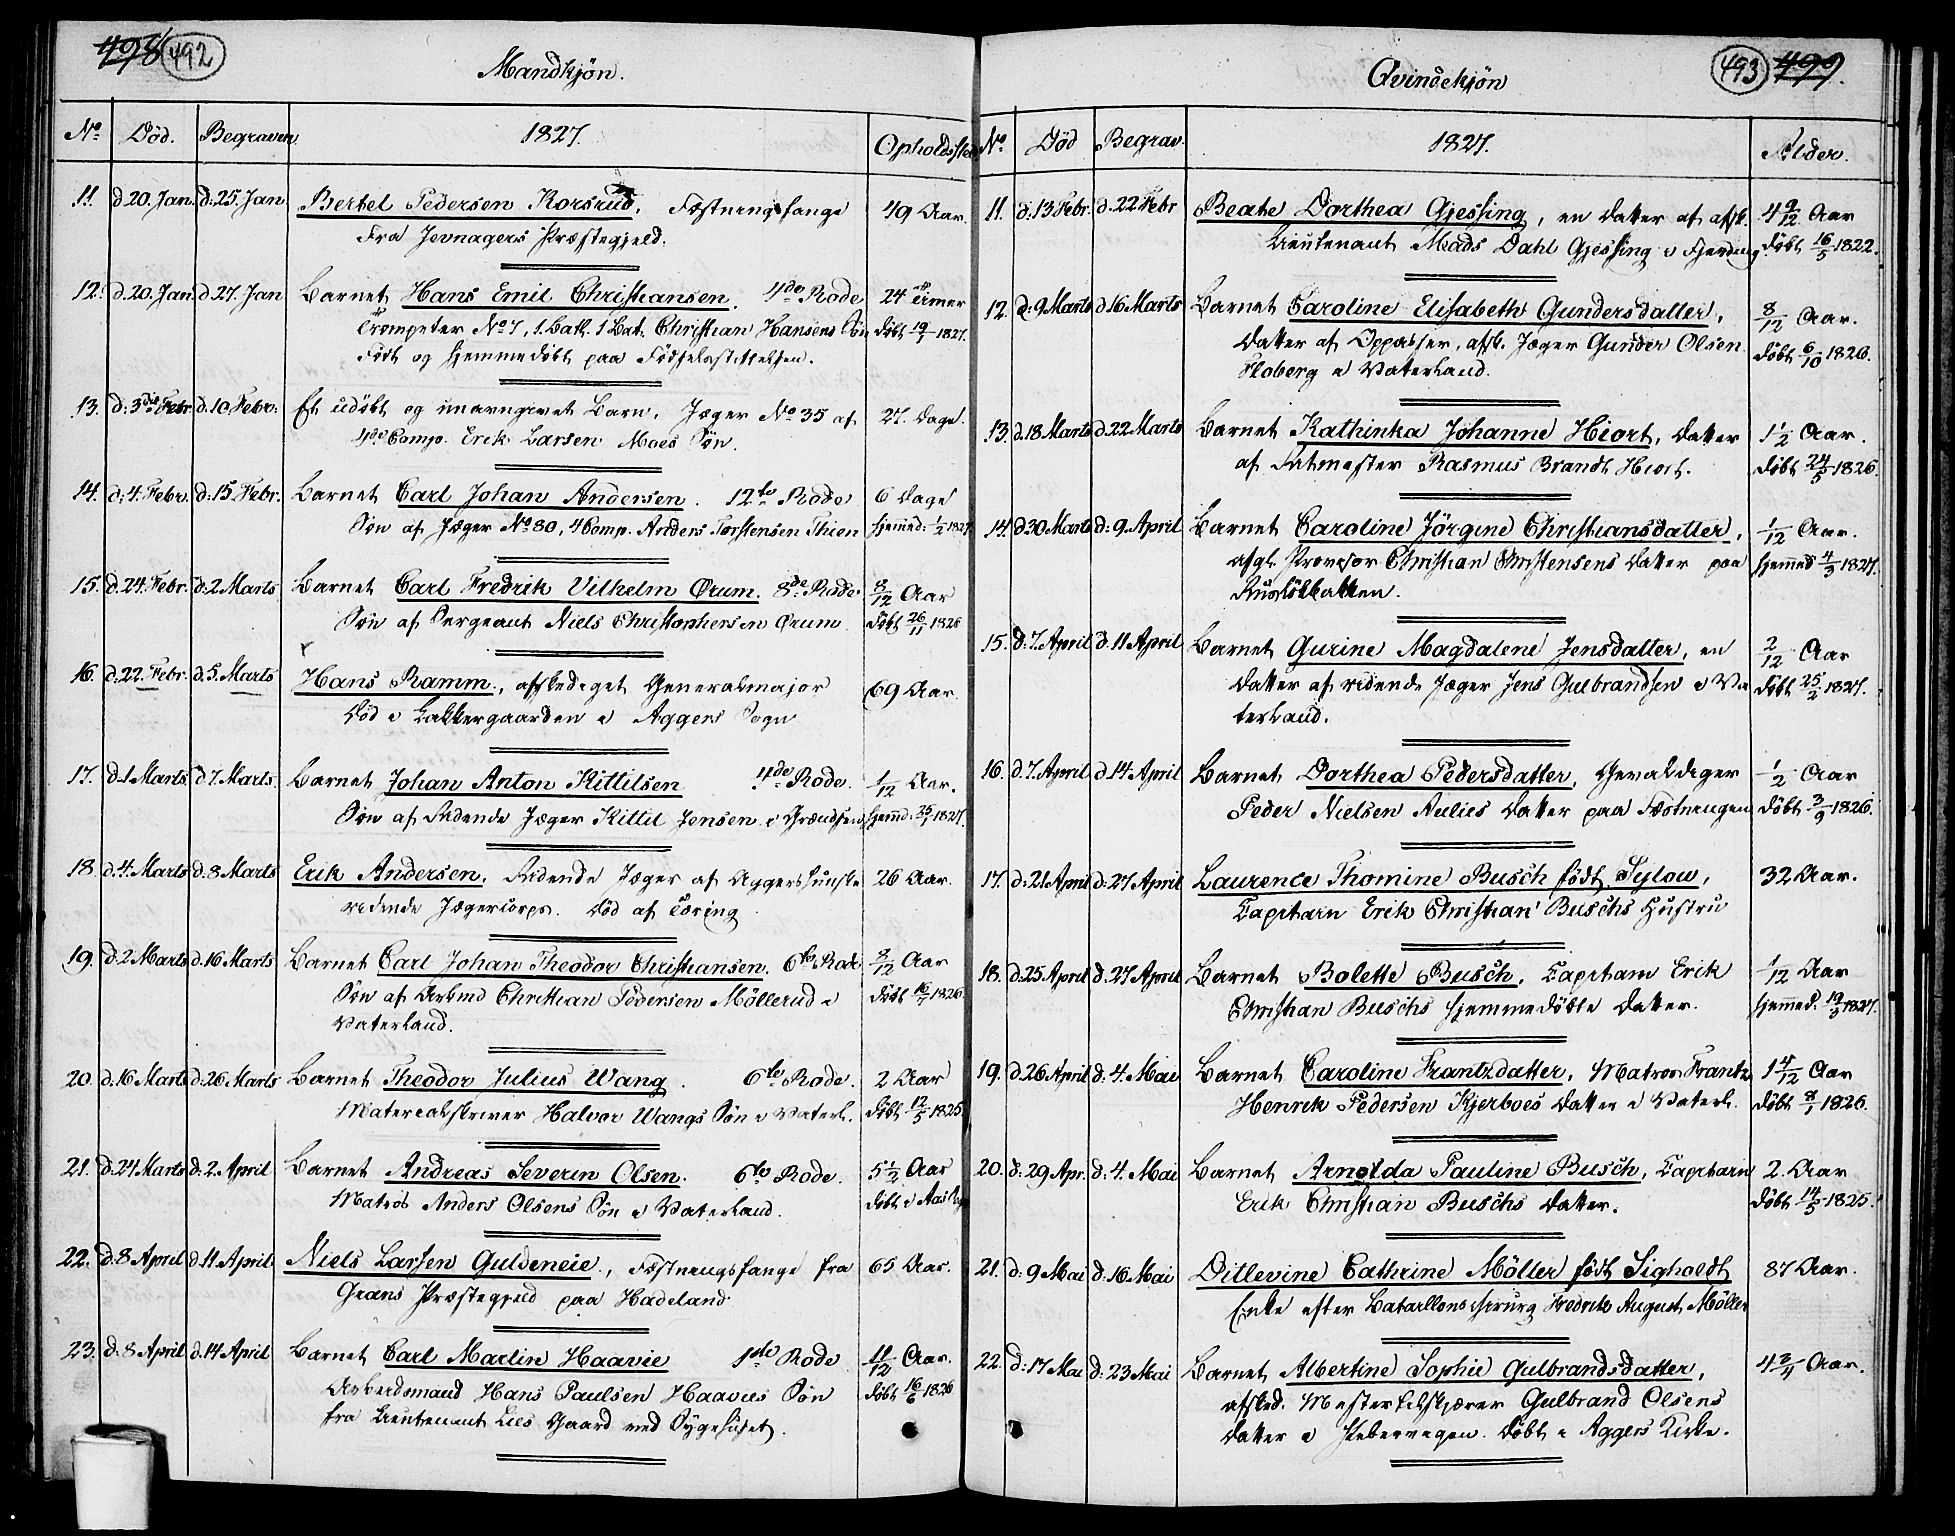 498 492
Mandkjön.
No Död. Begraven. 1827. Opholdssted
11. d 20. Jan. d: 25. Jan. Bertel Pedersen Korsrud, Fæstningsfange 49 Aar.
Fra Jevnagers Præstegjeld.
12. d. 20. Jan d 27. Jan Barnet Hans Emil Christiansen. 4de Rode 24 Timer
Trompeter No 7, 1. Bat. Christian Hansens Sön döbt 19/1 1827.
Födt og hjemmedöbt paa Födselsstiftelsen.
13. d: 3die Febr. d. 10. Febr: Et udöbt og unavngivet Barn, Jæger No 35 af 27. Dage.
4de Comp. Erik Larsen Moes Sön.
14. d: 4. Febr. d: 15. Febr. Barnet Carl Johan Andersen. 12te Rode 6 Dage
Sön af Jæger No 80, 4 Comp. Anders Torstensen Thien hjemmed: 1/2 1827.
15. d. 24. Febr. d: 2 Marts Barnet Carl Fredrik Vilhelm Ørum. 8de Rode 8/12 Aar
Sön af Sergeant Niels Christophersen Ørum döbt 26/11 1826
16. d. 22. Febr. d. 5. Marts Hans Ramm., afskediget Generalmajor 69 Aar.
Död i Lakkergaarden i Aggers Sogn
17. d. 1 Marts. d 7. Marts. Barnet Johan Anton Kittilsen 4de Rode. 1/12 Aar.
Sön af Ridende Jæger Kittil Jensen i Grændsen hjemd: 25/1 1827.
18. d. 4. Marts d. 8 Marts Erik Andersen. Ridende Jæger af Aggershuuske 26 Aar.
ridende Jægercorps. Död af Tæring
19. d. 2 Marts d. 16 Marts Barnet Carl Johan Theodor Christiansen. 6te Rode 8/12 Aar
Sön af Arbmd Christian Pedersen Möllerud i döbt 16/7 1826
Vaterland.
20. d. 16 Marts d. 26 Marts Barnet Theodor Julius Wang. 6te Rode. 2 Aar
Materialskriver Halvor Wangs Sön i Vaterl. döbt 12/5 1825
21. d. 24 Marts d: 2. April Barnet Andreas Severin Olsen. 6te Rode. 5 1/2 Aar
Matros Anders Olsens Sön i Vaterland. döbt i Aas
22. d: 8 April d. 11 April Niels Larsen Guldeneie., Fæstningsfange fra 65 Aar.
Grans Præstegjeld paa Hadeland
23. d: 8 April d. 14 April Barnet Carl Martin Haavie 1ste Rode 11/12 Aar.
Arbeidsmand Hans Paulsen Haavies Sön döbt 16/6 1826
fra Lieutenant Lies Gaard ved Sygehuset.
493 499.
Qvindekjön
No. Död Begrav. 1827. Alder.
11. d. 13 Febr. d. 22 Febr Beate Dorthea Gjessing, en Datter af afsk. 4 9/12 Aar
Lieutenant Mads Dahl Gjessing i Fjerding. döbt 16/5 1822.
12. d: 9 Marts d 16 Marts Barnet Caroline Elisabeth Gundersdatter, 8/12 Aar.
Datter af Oppasser, afsk. Jæger Gunder Olsen döbt 6/10 1826.
Floberg i Vaterland.
13. d. 18 Marts d 22 Marts Barnet Kathinka Johanne Hiort, Datter 1 1/2 Aar.
af Fatmester Rasmus Brandt Hiort. döbt 24/5 1826.
14. d 30 Marts d: 9. April Barnet Caroline Jörgine Christiansdatter, 1/12 Aar.
afgl. Provisor Christian Christensens Datter paa hjemmed 4/3 1827.
Ruslökbakken.
15. d: 7. April d. 11 April Barnet Gurine Magdalene Jensdatter, en 2/12 Aar
Datter af ridende Jæger Jens Gulbrandsen i Va döbt 25/2 1827.
terland.
16. d. 7. April d 14 April Barnet Dorthea Pedersdatter, Gevaldiger 1/2 Aar
Peder Nielsen Aulies Datter paa Fæstningen döbt 3/9 1826.
17. d: 21 April d: 27 April Laurence Thomine Busch födt Sylow, 32 Aar.
Capitain Erik Christian Buschs Hustru
18. d. 25 April d. 27 April Barnet Bolette Busch, Capitain Erik 1/12 Aar
Christian Buschs hjemmedöbte Datter. hjemmed. 19/3 1827.
19. d. 26 April d: 4. Mai Barnet Caroline Frantzdatter, Matros Frantz 1 4/12 Aar
Henrik Pedersen Kjerboes Datter i Vaterl. döbt 8/1 1826.
20. d: 29 Apr. d: 4. Mai Barnet Arnolda Pauline Busch, Capitain 2. Aar
Erik Christian Buschs Datter. döbt 14/5 1825.
21. d: 9 Mai d: 16 Mai Ditlevine Cathrine Möller födt Sigholdt 87 Aar.
Enke efter Bataillonschirurg Fredrik August Möller
22. d: 17 Mai d: 23 Mai Barnet Albertine Sophie Gulbrandsdatter, 4 3/4 Aar.
afsked. Mesterfeldskjærer Gulbrand Olsens
Datter i Pebervigen. döbt i Aggers Kirke.